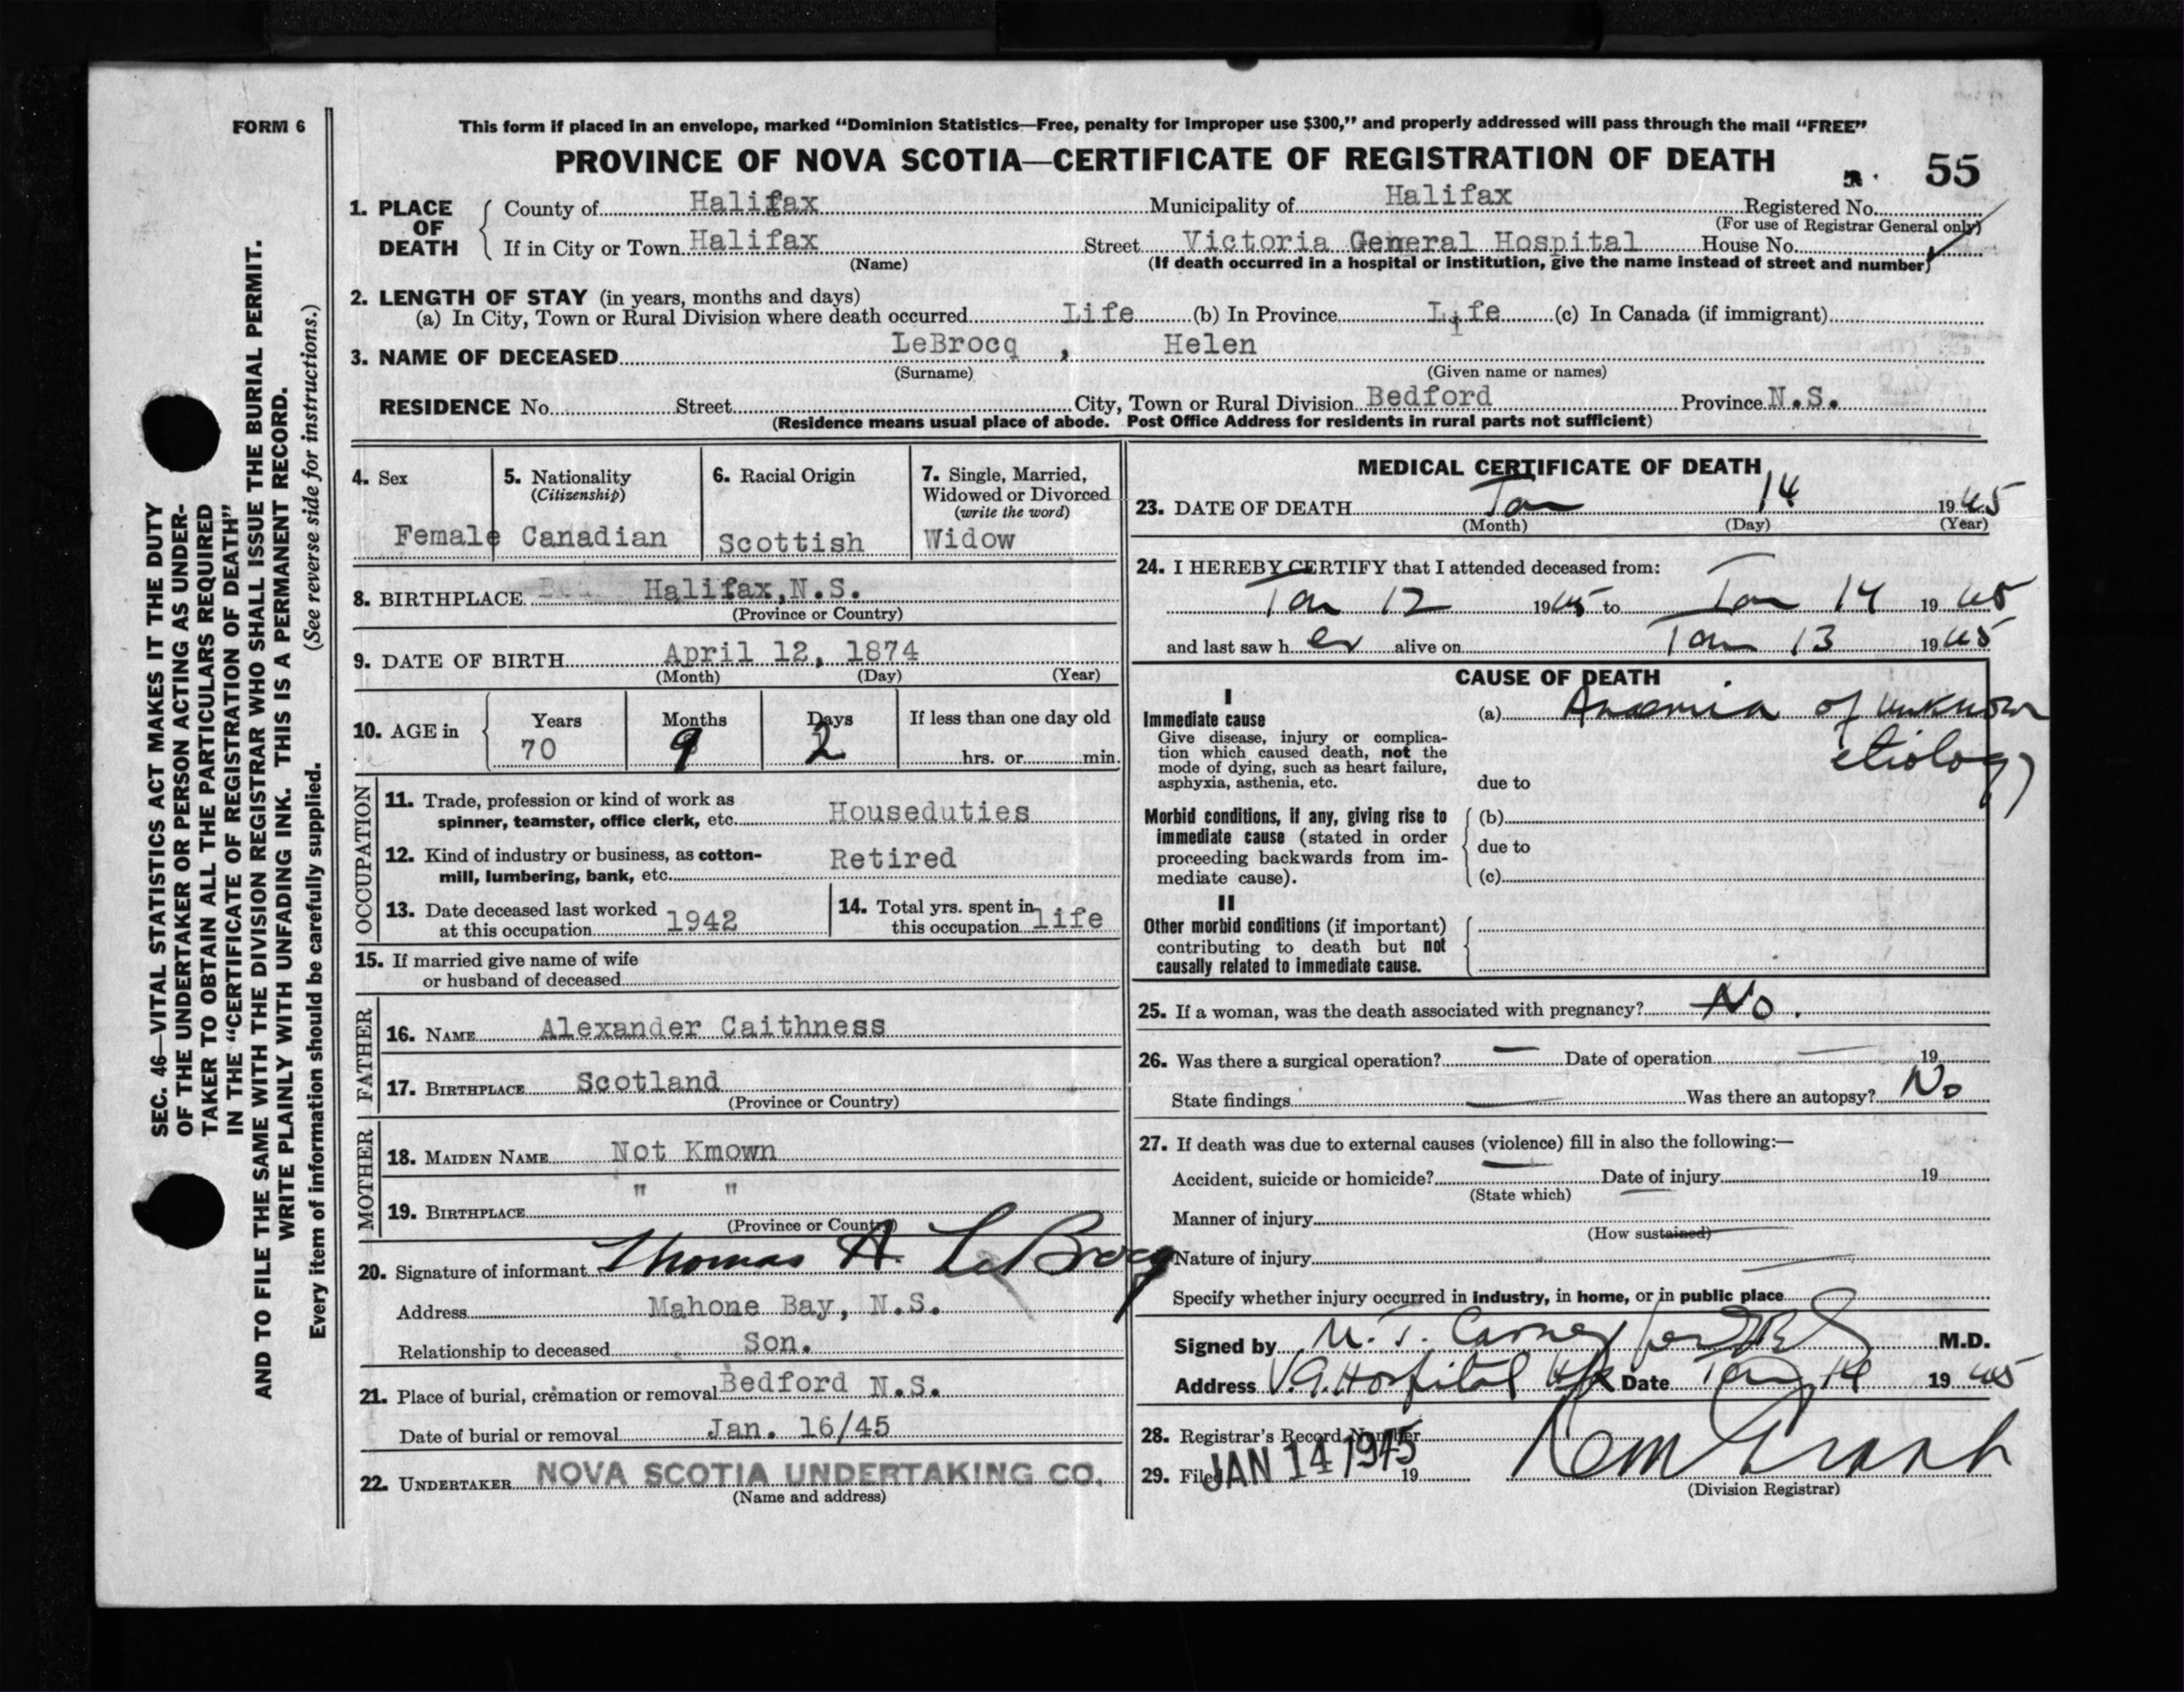 FORM 6
This form if placed in an envelope, marked “Dominion Statistics—Free, penalty for improper use $300,” and properly addressed will pass through the mail “FREE”
PROVINCE OF NOVA SCOTIA—CERTIFICATE OF REGISTRATION OF DEATH
55
1. PLACE OF DEATH
County of Halifax Municipality of Halifax Registered No.
(For use of Registrar General only)
If in City or Town Halifax Street Victoria General Hospital House No.
(Name) (If death occurred in a hospital or institution, give the name instead of street and number)
2. LENGTH OF STAY (in years, months and days)
(a) In City, Town or Rural Division where death occurred Life (b) In Province Life (c) In Canada (if immigrant)
3. NAME OF DECEASED LeBrocq , Helen
(Surname) (Given name or names)
RESIDENCE No. Street City, Town or Rural Division Bedford Province N.S.
(Residence means usual place of abode. Post Office Address for residents in rural parts not sufficient)
4. Sex
Female
5. Nationality
(Citizenship)
Canadian
6. Racial Origin
Scottish
7. Single, Married,
Widowed or Divorced
(write the word)
Widow
8. BIRTHPLACE Halifax,N.S.
(Province or Country)
9. DATE OF BIRTH April 12, 1874
(Month) (Day) (Year)
10. AGE in
Years Months Days If less than one day old
70 9 2 hrs. or min.
OCCUPATION
11. Trade, profession or kind of work as
spinner, teamster, office clerk, etc. Houseduties
12. Kind of industry or business, as cotton-
mill, lumbering, bank, etc. Retired
13. Date deceased last worked
at this occupation 1942
14. Total yrs. spent in
this occupation life
15. If married give name of wife
or husband of deceased
FATHER
16. NAME Alexander Caithness
17. BIRTHPLACE Scotland
(Province or Country)
MOTHER
18. MAIDEN NAME Not Kmown
19. BIRTHPLACE " "
(Province or Country)
20. Signature of informant Thomas A. LeBrocq
Address Mahone Bay, N.S.
Relationship to deceased Son.
21. Place of burial, cremation or removal Bedford N.S.
Date of burial or removal Jan. 16/45
22. UNDERTAKER NOVA SCOTIA UNDERTAKING CO.
(Name and address)
MEDICAL CERTIFICATE OF DEATH
23. DATE OF DEATH Jan 14 1945
(Month) (Day) (Year)
24. I HEREBY CERTIFY that I attended deceased from:
Jan 12 1945 to Jan 14 1945
and last saw her alive on Jan 13 1945
CAUSE OF DEATH
I
Immediate cause
Give disease, injury or complica-
tion which caused death, not the
mode of dying, such as heart failure,
asphyxia, asthenia, etc.
(a) Anaemia of unknown
etiology
due to
Morbid conditions, if any, giving rise to
immediate cause (stated in order
proceeding backwards from im-
mediate cause).
(b)
due to
(c)
II
Other morbid conditions (if important)
contributing to death but not
causally related to immediate cause.
25. If a woman, was the death associated with pregnancy? No.
26. Was there a surgical operation? — Date of operation — 19
State findings — Was there an autopsy? No
27. If death was due to external causes (violence) fill in also the following:—
Accident, suicide or homicide? — Date of injury — 19
(State which)
Manner of injury
(How sustained)
Nature of injury —
Specify whether injury occurred in industry, in home, or in public place
Signed by M.D.
Address V.G. Hospital Hfx Date Jan 14 1945
28. Registrar's Record Number
29. Filed JAN 14 1945 19
(Division Registrar)
SEC. 46—VITAL STATISTICS ACT MAKES IT THE DUTY
OF THE UNDERTAKER OR PERSON ACTING AS UNDER-
TAKER TO OBTAIN ALL THE PARTICULARS REQUIRED
IN THE “CERTIFICATE OF REGISTRATION OF DEATH”
AND TO FILE THE SAME WITH THE DIVISION REGISTRAR WHO SHALL ISSUE THE BURIAL PERMIT.
WRITE PLAINLY WITH UNFADING INK. THIS IS A PERMANENT RECORD.
Every item of information should be carefully supplied. (See reverse side for instructions.)